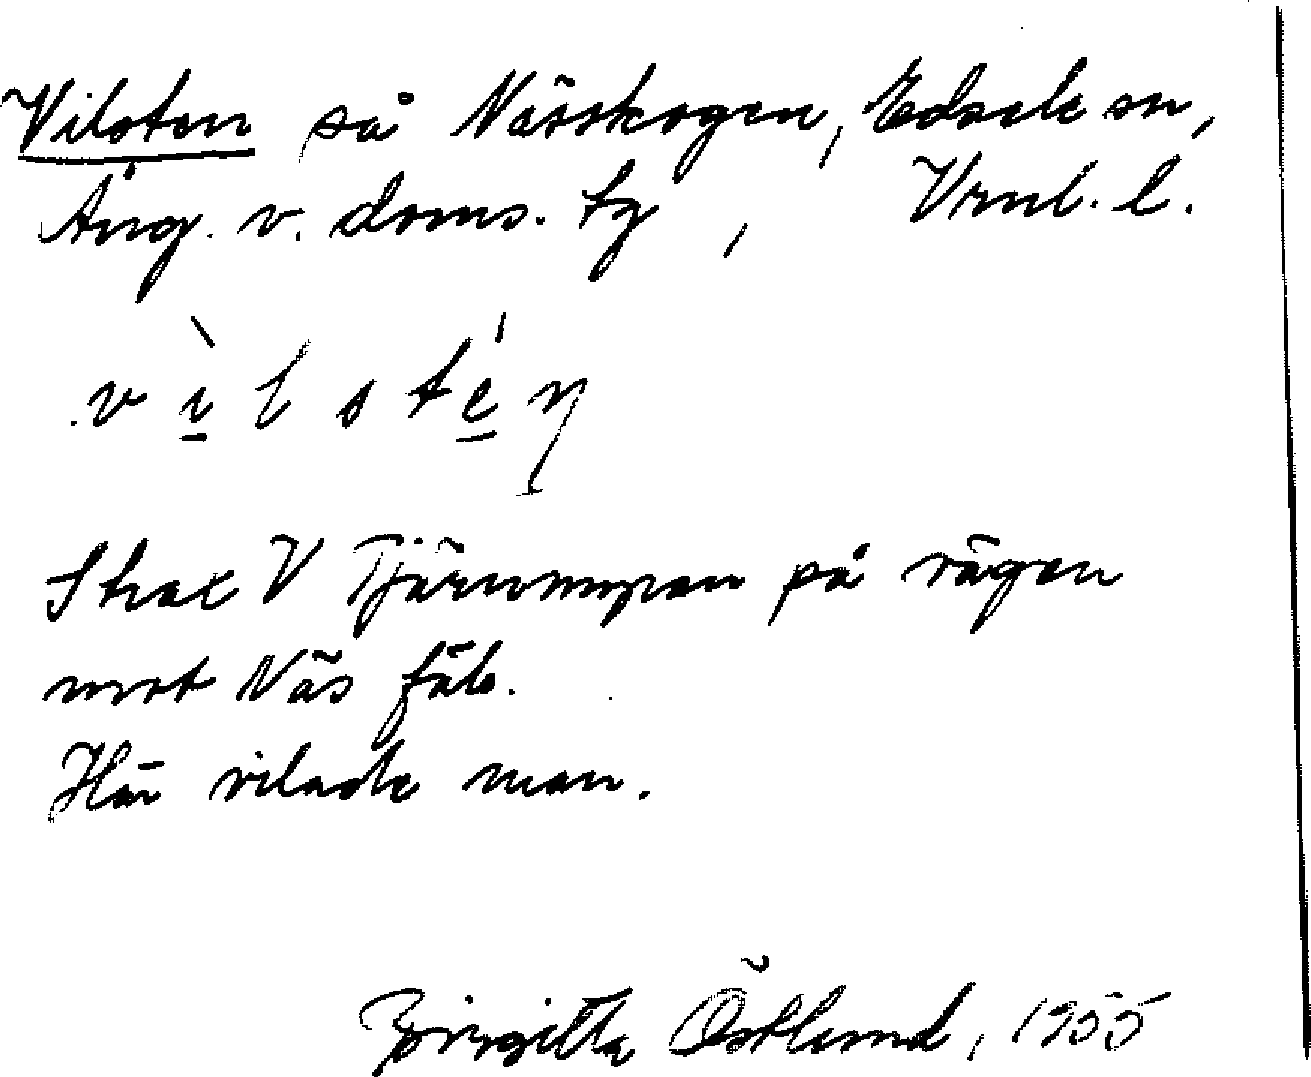 Vilsten på Nässkogen, Edsele sn,
Ång. v. doms. tg, Vrnl. l.
v ì l s t é n
Strax V Tjärnmyran på vägen
mot Näs fäb.
Här vilade man.
Birgitta Östlund, 1955